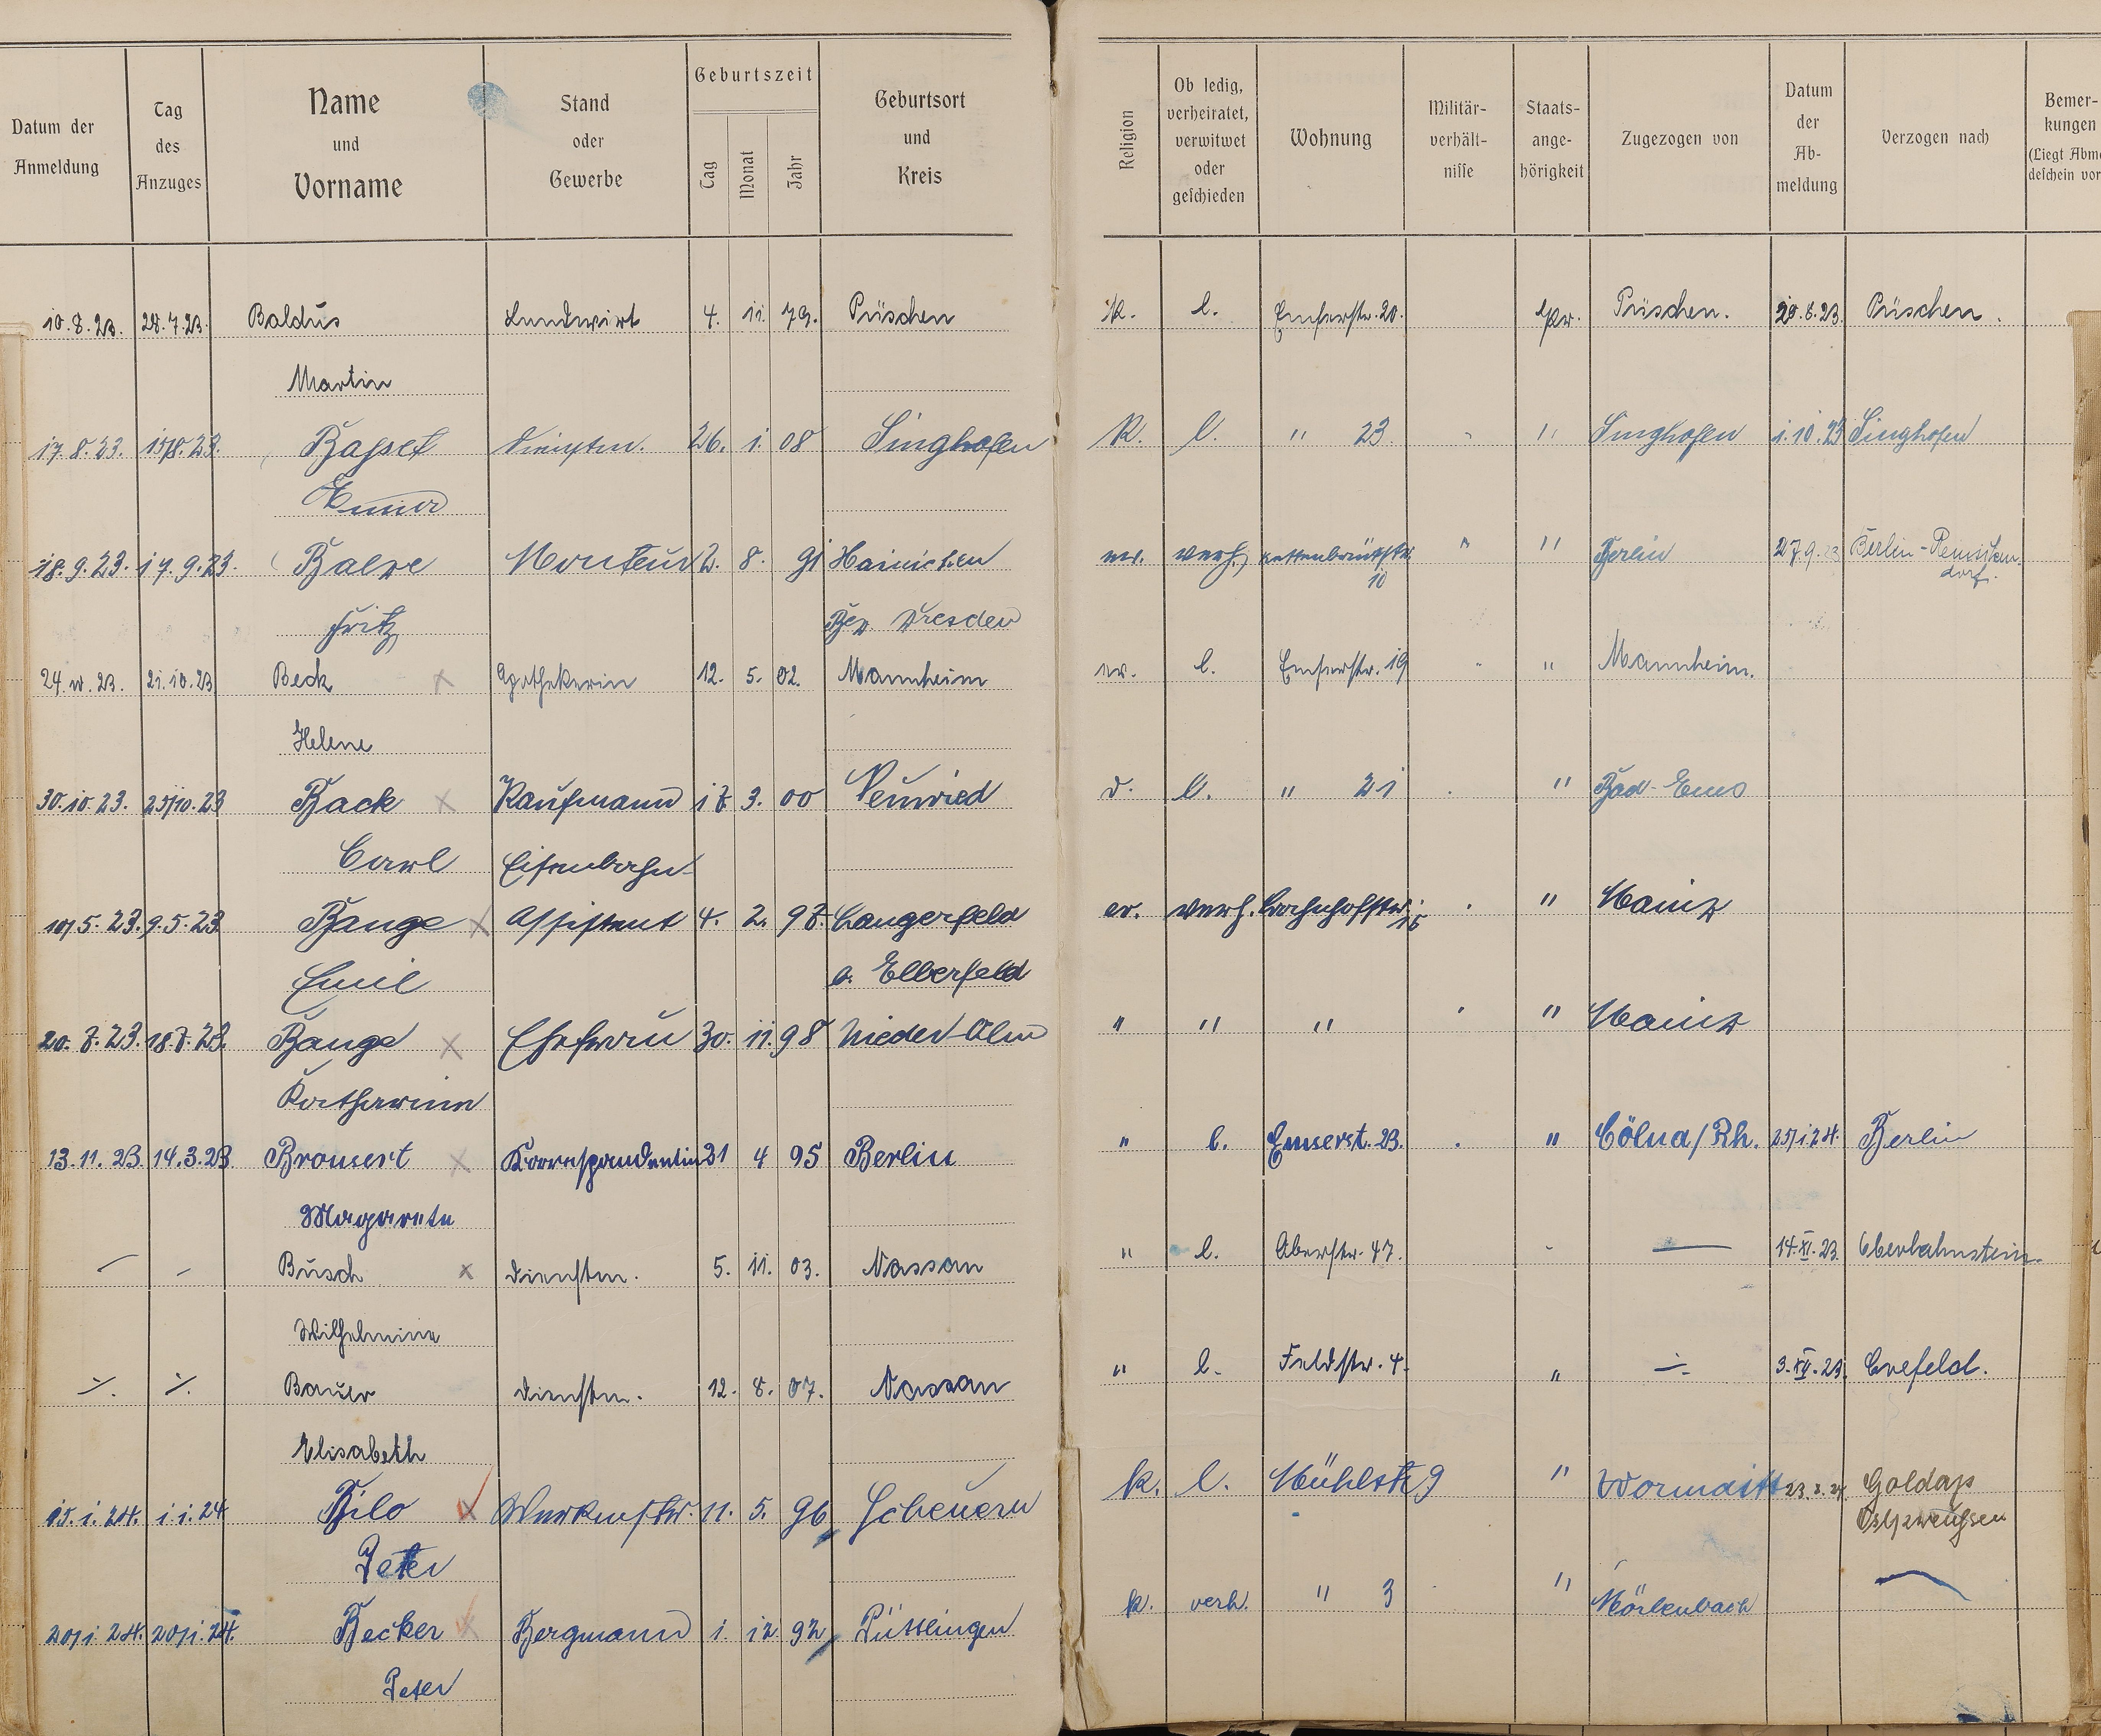 Datum der Anmeldung Tag des Anzuges Name und Vorname Stand oder Gewerbe Geburtszeit Tag Monat Jahr Geburtsort und Kreis Religion Ob ledig, verheiratet, verwitwet oder geschieden Wohnung Militär- verhält- nisse Staats- ange- hörigkeit Zugezogen von Datum der Ab- meldung Verzogen nach Bemer- kungen (Liegt Abm deschein vor
10.8.23. 28.7.23. Baldus Landwirt 4. 11. 79. Püschen k. l. Emserstr. 20. Pr. Püschen. 29.8.23. Püschen.
Martin
17.8.23. 15/8.23. Dienstm. 26. 1. 08 Singhofen K. l. " 23. " Singhofen 1.10.23 Singhofen
18.9.23. 17.9.23. Monteur 2. 8. 91 Hainichen ev. verh. Kettenbrückstr. 10 " " Berlin 27.9.23 Berlin-Reinicken-
dorf.
Fritz Bez. Dresden
24.10.23. 21.10.23 Beck Apothekerin 12. 5. 02. Mannheim ev. l. Emserstr. 19 " Mannheim.
Helene
30.10.23. 25/10.23 Back Kaufmann 17. 3. 00 Neuwied l. " 21 " Bad-Ems
Carl Eisenbahn-
10/5.23. 9.5.23 Bange Assistent 4. 2. 97. Langerfeld ev. verh. Bachhofstr. " Mainz
Emil b. Elberfeld
20.7.23. 18.7.23. Bange Ehefrau 30. 11. 98 Nieder-Olm " " " " Mainz
Katharina
13.11.23. 14.3.23 Bronsert Korrespondentin 21 4 95 Berlin " l. Emserst. 23. " Cölna/Rh. 25/1.24. Berlin
Magarete
— — Busch x Dienstm. 5. 11. 03. Nassau " l. Oberstr. 47. — 14.XI.23. Oberlahnstein.
Wilhelmine
Bauer Dienstm. 12. 8. 07. Nassau " l. Feldstr. 4. " 3.XII.23. Crefeld.
Elisabeth
15.1.24. 1.1.24 Bilo 11. 5. 96 Scheuern k. l. Mühlstr 9 " Wormditt 23.3.24. Goldap
Ostpreußen
Peter
20/1.24. 20/1.24. Becker Bergmann 1. 12 92 Püttlingen k. verh. " 3 " Mörlenbach
Peter